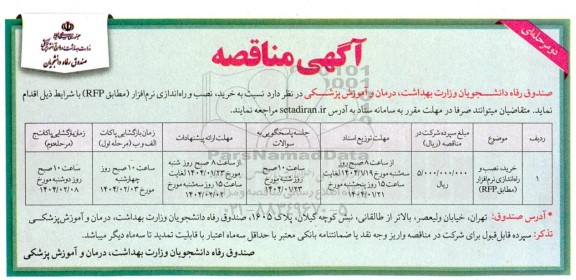 دو مرحله‌ای
وزارت بهداشت، درمان و آموزش پزشکی
صندوق رفاه دانشجویان
آگهی مناقصه
صندوق رفاه دانشجویان وزارت بهداشت، درمان و آموزش پزشکی در نظر دارد نسبت به خرید، نصب و راه‌اندازی نرم‌افزار (مطابق RFP) با شرایط ذیل اقدام
نماید. متقاضیان میتوانند صرفا در مهلت مقرر به سامانه ستاد به آدرس setadiran.ir مراجعه نمایند.
ردیف
موضوع
مبلغ سپرده شرکت در مناقصه (ریال)
مهلت توزیع اسناد
جلسه پاسخگویی به سوالات
مهلت ارائه پیشنهادات
زمان بازگشایی پاکات الف و ب (مرحله اول)
زمان بازگشایی پاکت ج (مرحله دوم)
۱
خرید، نصب و راه‌اندازی نرم‌افزار (مطابق RFP)
۵/۰۰۰/۰۰۰/۰۰۰ ریال
از ساعت ۸ صبح روز سه‌شنبه مورخ ۱۴۰۴/۱/۱۹ لغایت ساعت ۱۵ روز پنجشنبه مورخ ۱۴۰۴/۰۱/۲۱
ساعت ۱۰ صبح روز شنبه مورخ ۱۴۰۴/۰۱/۲۳
از ساعت ۸ صبح روز شنبه مورخ ۱۴۰۴/۰۱/۲۳ لغایت ساعت ۱۵ روز سه شنبه مورخ ۱۴۰۴/۰۲/۰۲
ساعت ۱۰ صبح روز چهارشنبه مورخ ۱۴۰۴/۰۲/۰۳
ساعت ۱۰ صبح روز دوشنبه مورخ ۱۴۰۴/۰۲/۰۸
ParsNamadData
۰۲۱-۸۸۳۴۹۶۷۰
• آدرس صندوق: تهران، خیابان ولیعصر، بالاتر از طالقانی، نبش کوچه گیلان، پلاک ۱۶۰۵، صندوق رفاه دانشجویان وزارت بهداشت، درمان و آموزش‌پزشکی
تذکر: سپرده قابل‌قبول برای شرکت در مناقصه واریز وجه نقد یا ضمانتنامه بانکی معتبر با حداقل سه‌ماه اعتبار با قابلیت تمدید تا سه‌ماه دیگر میباشد.
صندوق رفاه دانشجویان وزارت بهداشت، درمان و آموزش پزشکی